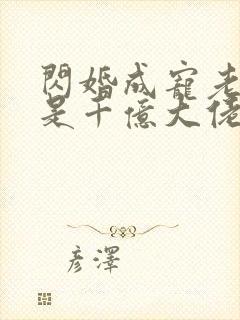 閃婚成寵老
是千億大佬
彥澤